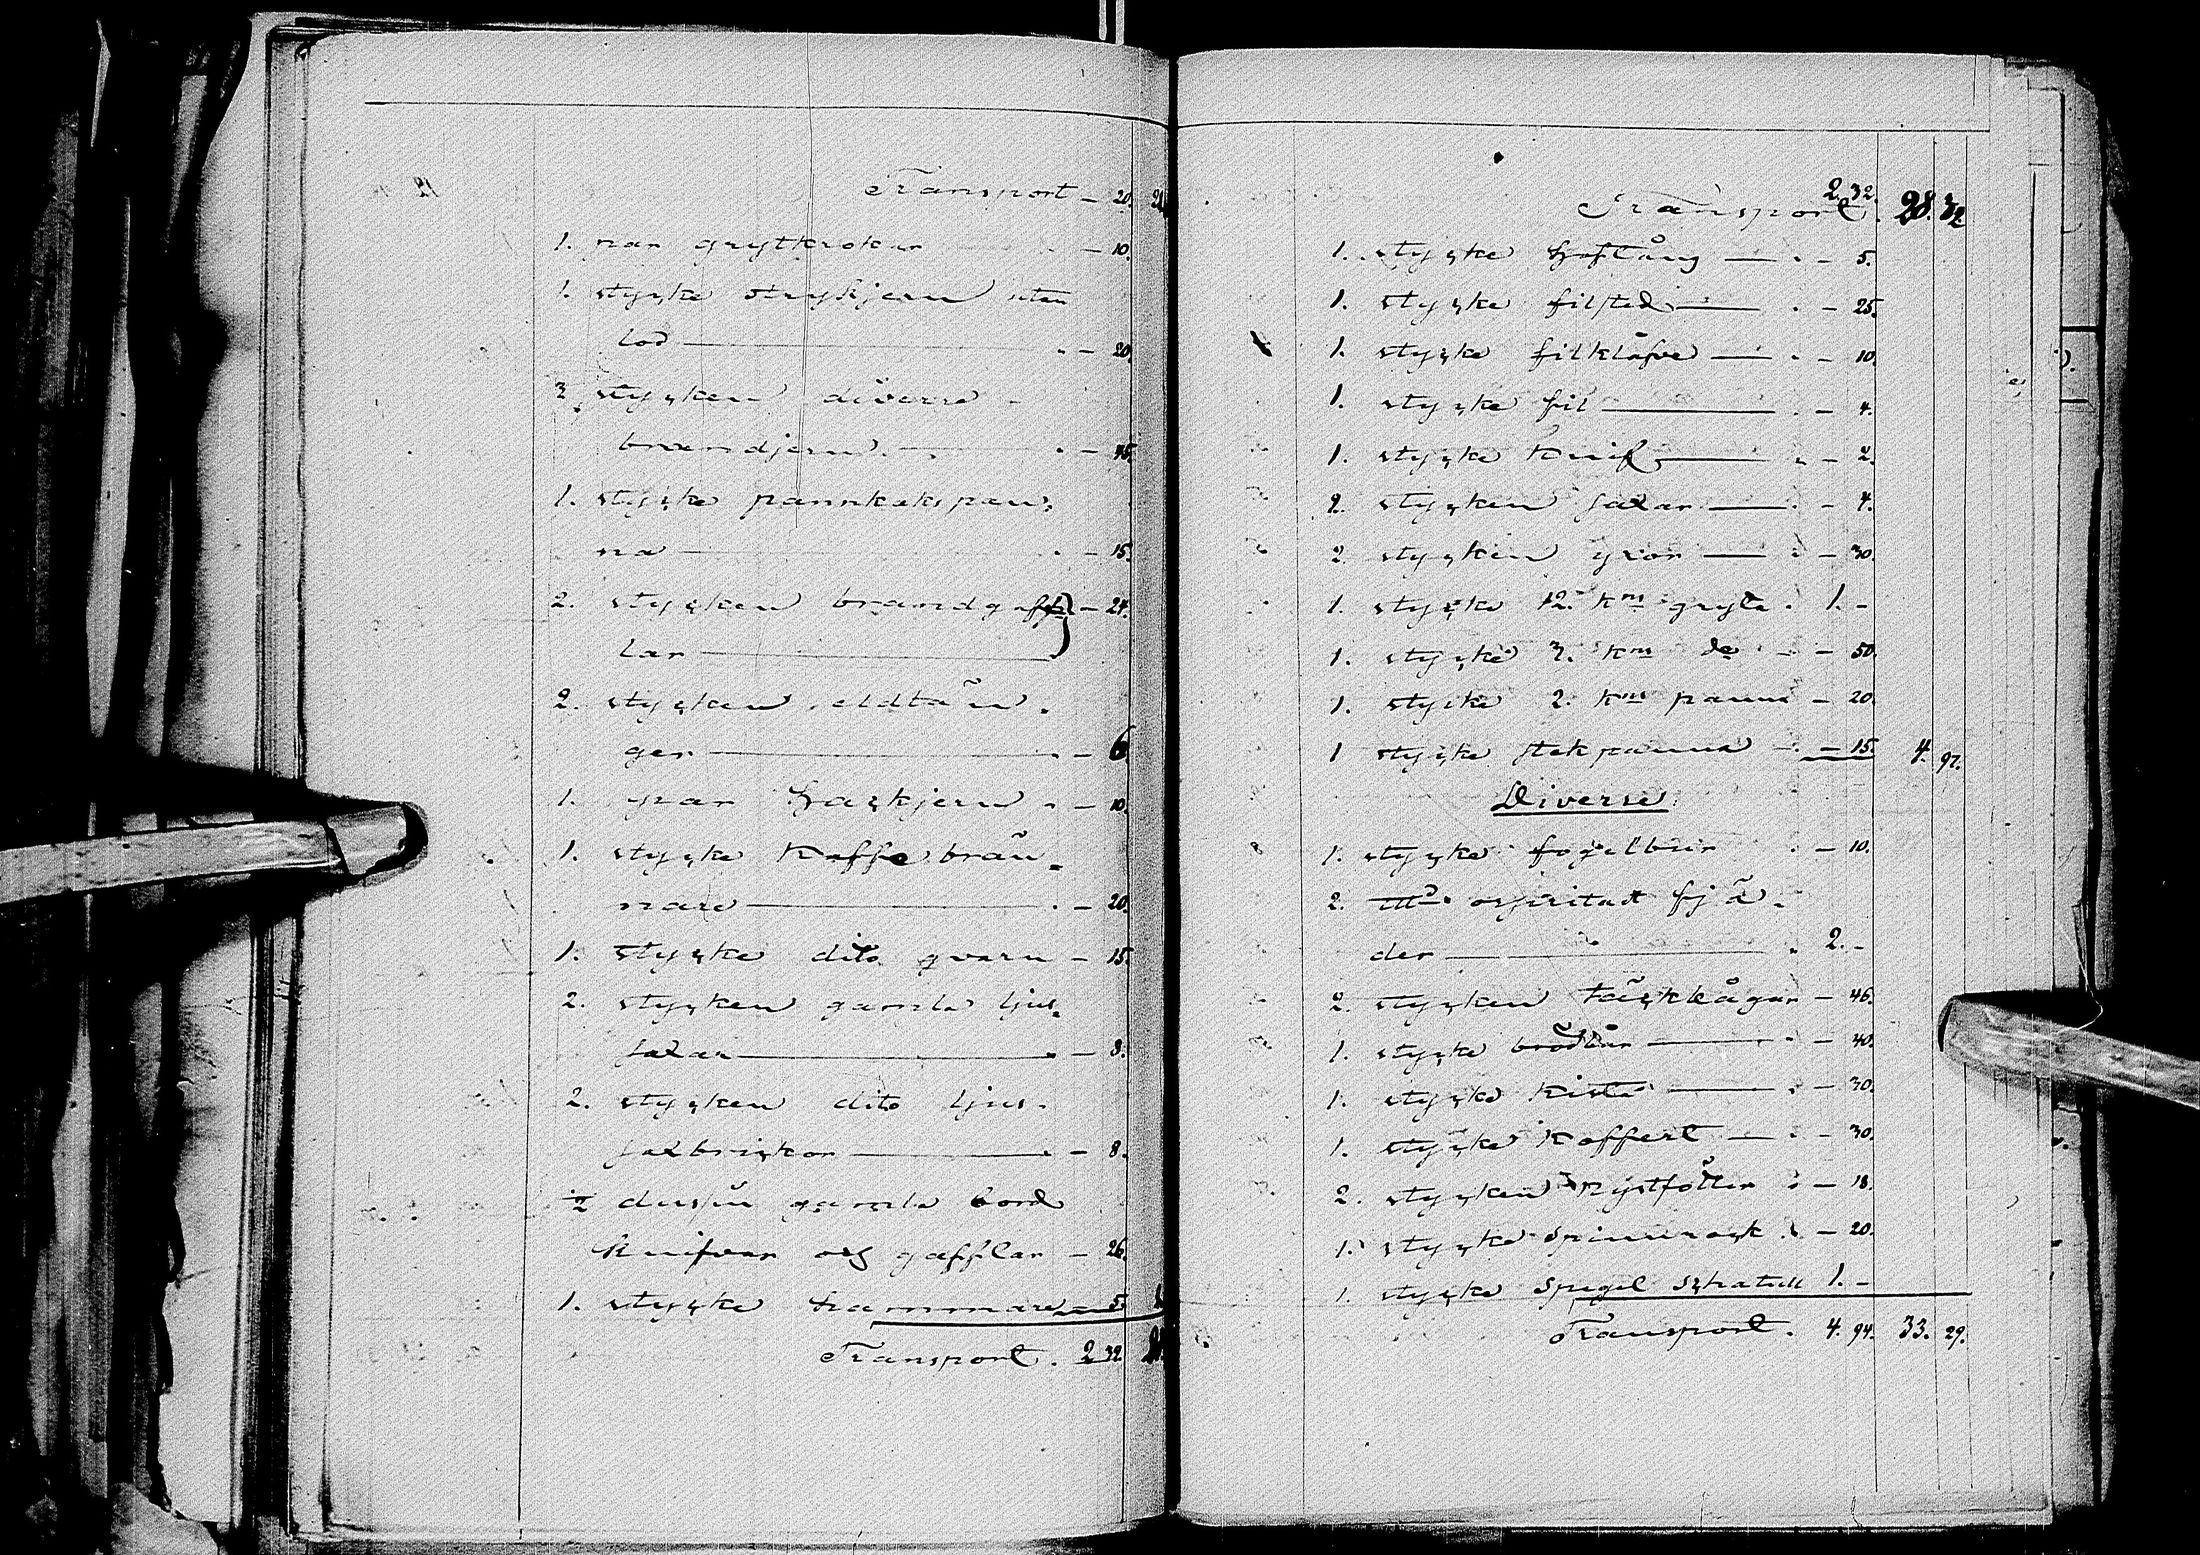 Transport – 20.
1. par grytkrokar – 10.
1. stycke strykjern utan
lod – 20.
3. stycken diverse
brandjern – 45.
1. stycke pannkakspan-
na – 15.
2. stycken brandgaff- – 24.
lar
2. stycken eldtän-
ger – 6.
1. par hackjern – 10.
1. stycke Kaffebrän-
nare – 20.
1. stycke dito qvarn – 15.
2. stycken gamla ljus-
saxar – 8.
2. stycken dito ljus-
saxbrickor – 8.
½ dussin gamla bord
knifvar och gafflar – 26.
1. stycke hammare – 5.
Transport. 2 32.
Transport 2. 32. 28. 32
1. stycke hoftång – 5.
1. stycke filsted – 25.
1. stycke filklåfve – 10
1. stycke fil – 4.
1. stycke Knif – 2.
2. stycken saxar – 4.
2. stycken yxor – 30.
1. stycke 12. kns gryta 1. –
1. stycke 3. kns do – 50.
1. stycke 2. kns panna – 20.
1 stycke stekpanna – 15. 4. 97.
Diverse
1. stycke fogelbur – 10.
2. ospritat fjä-
der 2. –
2. stycken Täskkågar – 46.
1. stycke brödlår – 40.
1. stycke Kista – 30.
1. stycke Koffert – 30.
2. stycken nystfötter – 18.
1. stycke spinnrock – 20.
1. stycke spegel schatull 1. –
Transport. 4. 94. 33. 29.